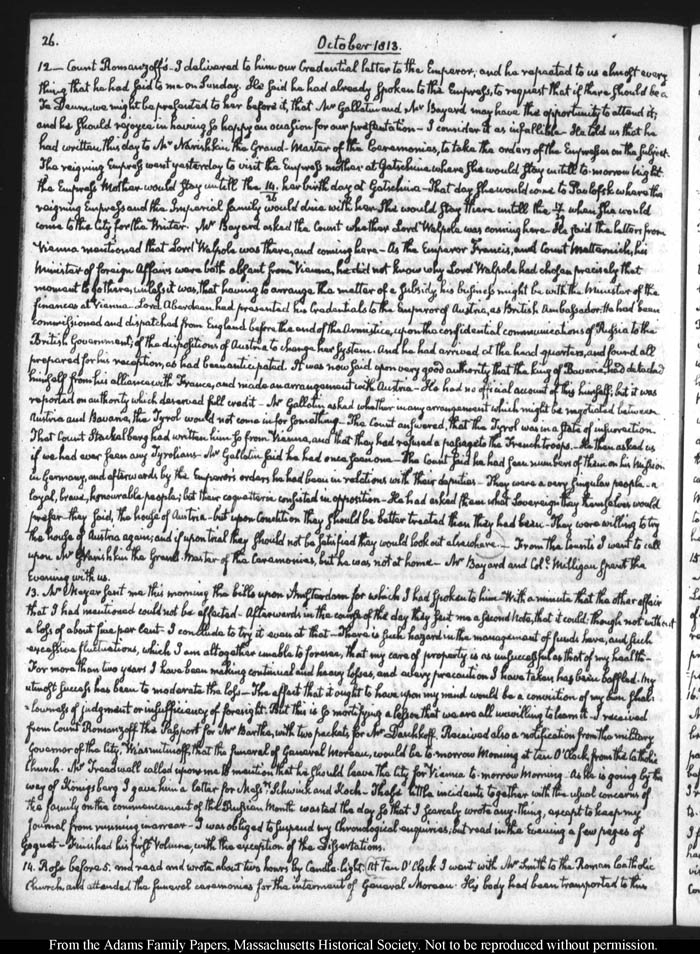 26.
October 1813.
12— Count Romanzoff's— I delivered to him our Credential letter to the Emperor, and he repeated to us almost every
thing that he had said to me on Sunday. He said he had already spoken to the Empress, to request that if there should be a
Te Deum, we might be presented to her before it, that Mr Gallatin and Mr Bayard may have the opportunity to attend it;
and he should rejoyce in having so happy an occasion for our presentation— I consider it as infallible— He told us that he
had written this day to Mr Narishkin, the Grand-Master of the Ceremonies, to take the orders of the Empresses on the subject.
The reigning Empress went yesterday to visit the Empress mother at Gatschina where she would stay untill to-morrow night
the Empress Mother would stay untill the 14/26 her birth day at Gatschina— That day she would come to Pavlofsk where the
reigning Empress and the Imperial family would dine with her. She would stay there untill the when she would
come to the City for the Winter. Mr Bayard asked the Count whether Lord Walpole was coming here. He said the letters from
Vienna mentioned that Lord Walpole was there, and coming here— As the Emperor Francis, and Count Metternich, his
Minister of foreign Affairs were both absent from Vienna, he did not know why Lord Walpole had chosen precisely that
moment to go there, unless it was, that having to arrange the matter of a subsidy, his business might be with the Minister of the
finances at Vienna— Lord Aberdeen had presented his Credentials to the Emperor of Austria, as British Ambassador. He had been
commissioned and dispatched from England before the end of the Armistice, upon the confidential communications of Russia to the
British Government, of the dispositions of Austria to change her System. And he had arrived at the head quarters, and found all
prepared for his reception, as had been anticipated. It was now said upon very good authority, that the king of Bavaria, had detached
himself from his alliance with France, and made an arrangement with Austria— He had no official account of this himself; but it was
reported on authority which deserved full credit— Mr Gallatin asked whether in any arrangement which might be negotiated between
Austria and Bavaria, the Tyrol would not come in for something— The Count answered, that the Tyrol was in a state of insurrection.
That Count Stackelberg had written him so from Vienna, and that they had refused a passage to the French troops. He then asked us
if we had ever seen any Tyrolians— Mr Gallatin said he had once seen one— The Count said he had seen numbers of them on his mission
in Germany, and afterwards by the Emperor's orders he had been in relations with their deputies— They were a very singular people— a
loyal, brave, honourable people; but their coquetterie consisted in opposition— He had asked them what Sovereign they themselves would
prefer— they said, the house of Austria— but upon condition they should be better treated than they had been— They were willing to try
the house of Austria again; and if upon trial they should not be satisfied they would look out elsewhere— From the Count's I went to call
upon Mr Narishkin the Grand-Master of the Ceremonies, but he was not at home— Mr Bayard and Coll. Milligan spent the
Evening with us.
13. Mr Meyer sent me this morning the bills upon Amsterdam for which I had spoken to him— With a minute that the other affair
that I had mentioned could not be effected— Afterwards in the course of the day they sent me a second Note, that it could; though not without
a loss of about five per Cent— I conclude to try it even at that— There is such hazard in the management of funds here, and such
excessive fluctuations, which I am altogether unable to foresee, that my care of property is as unsuccessful as that of my health—
For more than two years I have been making continual and heavy losses, and every precaution I have taken has been baffled. My
utmost success has been to moderate the loss— The effect that it ought to have upon my mind would be a conviction of my own shal-
-lowness of judgment or insufficiency of foresight. But this is so mortifying a lesson that we are all unwilling to learn it— I received
from Count Romanzoff the Passport for Mr Barthe, with two packets for Mr Daschkoff. Received also a notification from the military
Governor of the City, Wiasmitinoff, that the funeral of General Moreau, would be to-morrow Morning at ten O'Clock, from the Catholic
Church— Mr Treadwell called upon me to mention that he should leave the City for Vienna to-morrow Morning. As he is going by the
way of Königsberg I gave him a letter for Messrs Schwinck and Koch— These little incidents together with the usual concerns of
the family on the commencement of the Russian Month wasted the day so that I scarcely wrote any-thing, except to keep my
Journal from running in arrear— I was obliged to suspend my Chronological enquiries, but read in the Evening a few pages of
Goguet— Finished his first Volume, with the exception of the Dissertations.
14. Rose before 5. and read and wrote about two hours by Candle-light. At ten O'Clock I went with Mr Smith to the Roman Catholic
Church, and attended the funeral ceremonies for the interment of General Moreau. His body had been transported to this
From the Adams Family Papers, Massachusetts Historical Society. Not to be reproduced without permission.